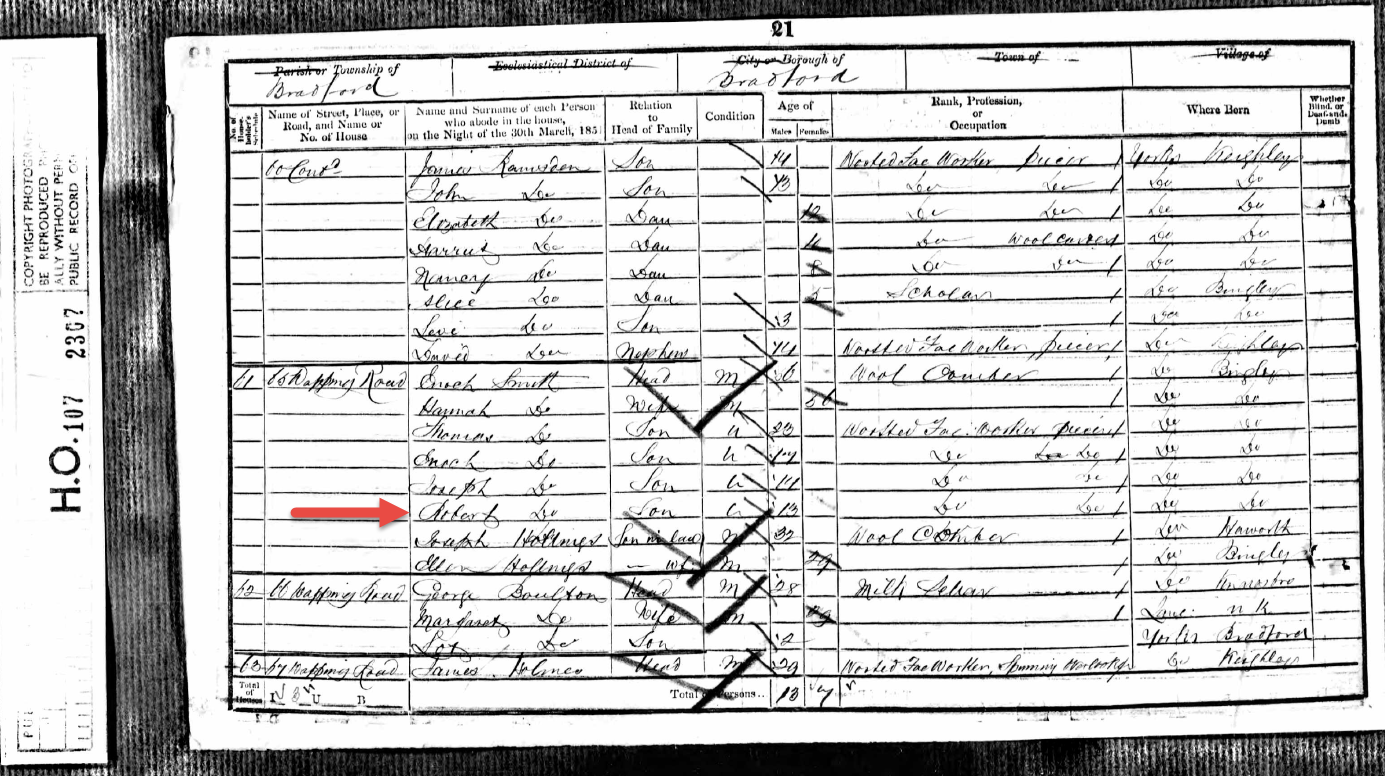 COPYRIGHT PHOTOGRAP
BE REPRODUCED
ALLY WITHOUT PER
PUBLIC RECORD O
H.O. 107 2307
21
Parish or Township of Ecclesiastical District of City or Borough of Town of Village of
Bradford Bradford
No. of House-holder's Schedule Name of Street, Place, or Road, and Name or No. of House Name and Surname of each Person who abode in the house, on the Night of the 30th March, 1851 Relation to Head of Family Condition Age of Males Females Rank, Profession, or Occupation Where Born Whether Blind, or Deaf-and-Dumb
60 Contd James Ramsden Son 14 Worsted Fac Worker piecer Yorks Keighley
John Do Son 13 Do Do Do Do
Elizabeth Do Dau 12 Do Do Do Do
Harriet Do Dau 11 Do Do Do
Nancy Do Dau 8 Do Do Do Do
Alice Do Dau 5 Scholar Do Bingley
Levi Do Son 3 Do Do
David Do Nephew 14 Worsted Fac Worker, piecer Do Keighley
61 65 Wapping Road Enoch Smith Head M 56 Wool Comber Do Bingley
Hannah Do Wife M 56 Do Do
Thomas Do Son U 23 Worsted Fac. Worker piecer Do Do
Enoch Do Son U 17 Do Do Do Do
Joseph Do Son U 14 Do Do Do Do
Robert Do Son U 13 Do Do Do Do
Joseph Hollings Son in law M 32 Wool Comber Do Haworth
Ellen Hollings M 29 Do Bingley
62 66 Wapping Road George Boulton Head M 28 Milk Do
Margaret Do Wife M Lanc: n k
Do Son 2 Yorks Bradford
63 67 Wapping Road James Holmes Head M 29 Worsted Fac Worker, Spinning Overlooker Do Keighley
Total of Houses I 3 U B Total of Persons.. 13 7